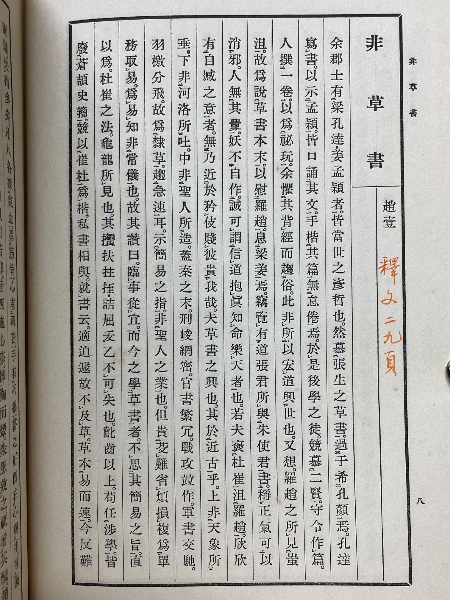 非草書
非草書
趙壹
釋文二九頁
余郡士有梁孔達姜孟穎者皆當世之彥哲也然慕張生之草書過于希孔顏焉孔達
寫書以示孟穎皆口誦其文手楷其篇無怠倦焉於是後學之徒競慕二賢守令作篇
人撰一卷以爲祕玩余懼其背經而趨俗此非所以宏道興世也又想羅趙之所見蚩
沮故爲說草書本末以慰羅趙息梁姜焉竊覽有道張君所與朱使君書稱正氣可以
消邪人無其釁妖不自作誠可謂信道抱眞知命樂天者也若夫褒杜崔沮羅趙欣欣
有自臧之意者無乃近於矜伎賤彼貴我哉夫草書之興也其於近古乎上非天象所
垂下非河洛所吐中非聖人所造蓋秦之末刑峻網密官書繁冗戰攻並作軍書交馳
羽檄分飛故爲隸草趨急速耳示簡易之指非聖人之業也但貴删難省煩損複爲單
務取易爲易知非常儀也故其讚曰臨事從宜而今之學草書者不思其簡易之旨直
以爲杜崔之法龜龍所見也其扶拄挃詰屈叐乙不可失也齓齒以上苟任涉學皆
廢蒼頡史籒競以崔杜爲楷私書相與就書云適迫遽故不及草草本易而速今反難
八